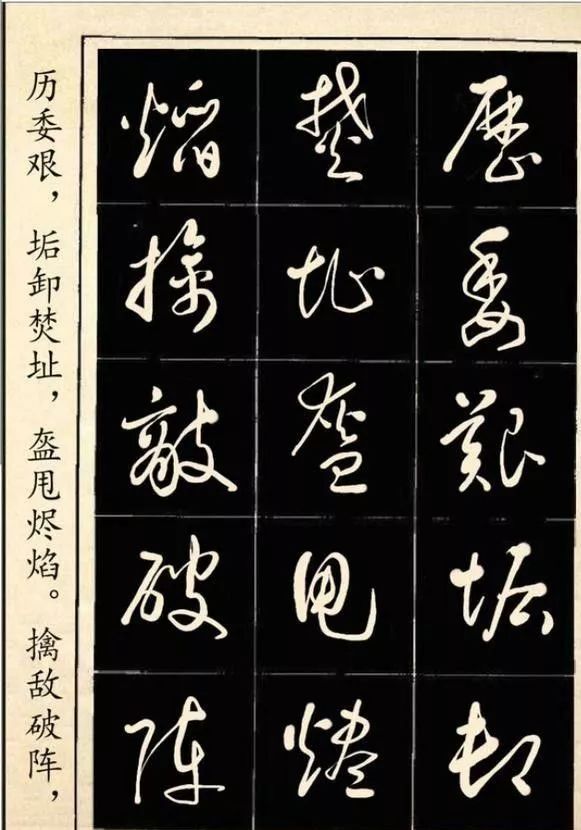 歷委艱垢卸
焚址盔甩燼
焰擒敵破陣
历委艰，垢卸焚址，盔甩烬焰。擒敌破阵，